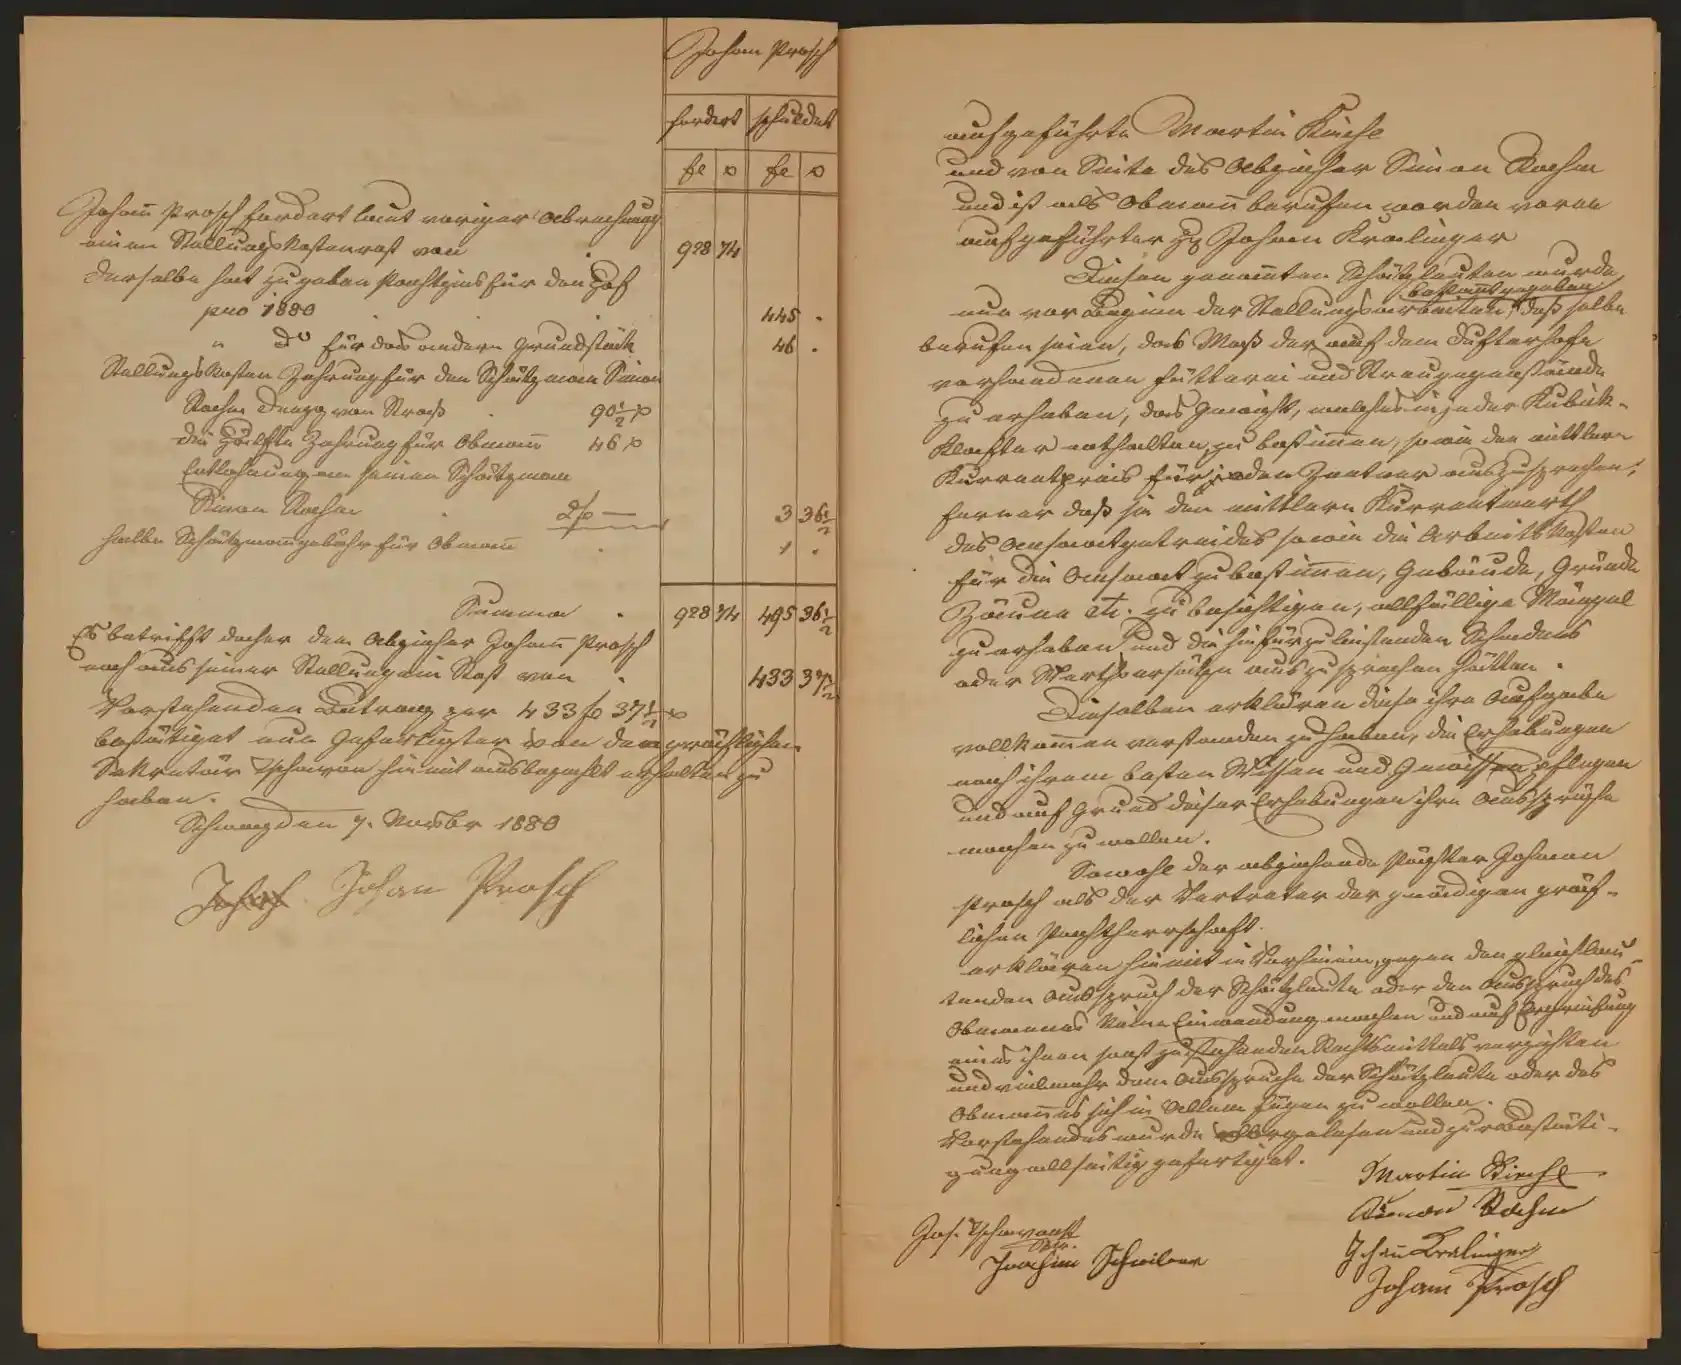 Johann Prosch
fordert schuldet
fl x fl x
Johann Prosch fordert laut voriger Abrechnung
einen Stellungskostenrest von 928 74
Derselbe hat zu geben Pachtzins für den Hof
pro 1880 445 .
" do für das andere Grundstück 46 .
Stellungskosten Zehrung für den Schätzmann Simon
Rachm von Strass 90½ x
die Hälfte Zehrung für Obmann 46 x
Entlohnung an seinen Schätzmann
Simon Rachm 2 fl — 3 36½
halbe Schätzmanngebühr für Obmann 1 .
Summa . 928 74 495 36½
Es betrifft daher den Abzieher Johann Prosch
noch aus seiner Stellung ein Rest von . 433 37½
Vorstehenden Betrag per 433 fl 37½ x
bestätiget nun Gefertigter von dem gräflichen
Sekretär Tschavon hiemit ausbezahlt erhalten zu
haben.
Schwaz den 7. Novbr 1880
Johan Prosch
aufgeführte Martin Kirchl
und von Seite des Abzieher Simon Rachm
und ist als Obmann berufen worden voran
aufgeführter Johann Kreolinger
Diesen genannten Schätzleuten wurde
bekannt gegeben
nun vor Beginn der Stellungsarbeiten, daß selbe
berufen seien, das Maß der auf dem Dufterhofe
vorhandenen Fütterei und Streugegenstände
zu erheben, das Gewicht, welches in jeder Kubik-
klafter enthalten zu bestimmen, sowie den mittlern
Kurrentpreis für jeden Zentner auszusprechen,
ferner daß sie den mittlern Kurrentwerth
des Ansaatgetreides sowie die Arbeitskosten
für die Ansaat zu bestimmen, Gebäude, Gründe
Zäune etc. zu besichtigen, allfällige Mängel
zu erheben und die hiefür zu leistenden Schadens
oder Werthersätze auszusprechen hätten.
Dieselben erklären diese ihre Aufgabe
vollkommen verstanden zu haben, die Erhebungen
nach ihrem besten Wissen und Gewissen pflegen
und auf Grund dieser Erhebungen ihre Aussprüche
machen zu wollen.
Sowohl der abziehende Pächter Johann
Prosch als der Vertreter der gnädigen gräf-
lichen Pachtherrschaft.
erklären hiemit im Vorhinein, gegen den gleichlau-
tenden Ausspruch der Schätzleute oder den Ausspruch des
Obmannes keine Einwendung machen und auf Ergreifung
eines ihnen sonst zustehenden Rechtsmittels verzichten
und vielmehr dem Ausspruche der Schätzleute oder des
Obmannes sich in Allem fügen zu wollen.
Vorstehendes wurde vorgelesen und zur Bestäti-
gung allseitig gefertiget.
Martin Kirchl
Simon Rachm
Jos. Tschavon
Johann Kreolinger
Joachim Schreiber
Johann Prosch